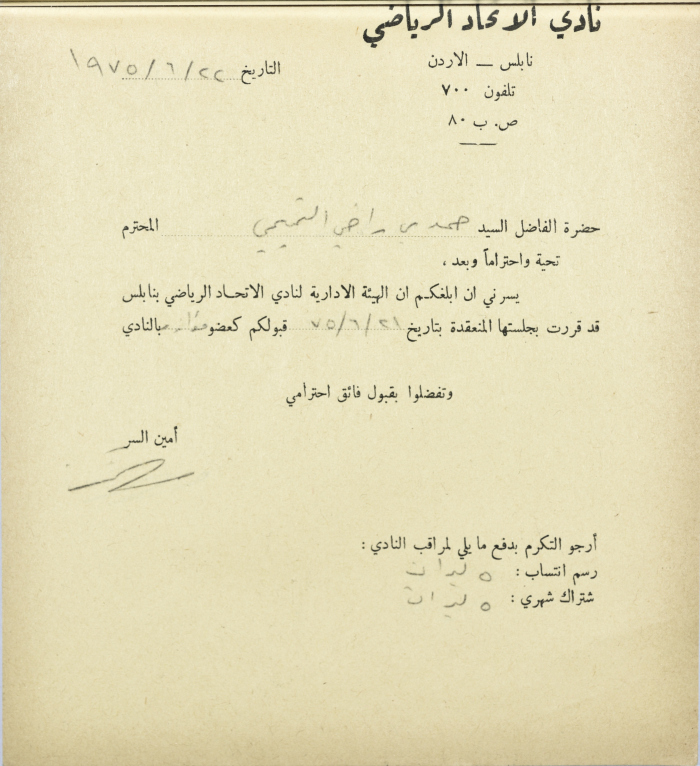 نادي الاتحاد الرياضي
نابلس ــ الاردن
تلفون ٧٠٠
ص. ب ٨٠
التاريخ ٢٢/٦/١٩٧٥
حضرة الفاضل السيد حمدي راضي التميمي المحترم
تحية واحتراماً وبعد ،
يسرني ان ابلغكم ان الهيئة الادارية لنادي الاتحاد الرياضي بنابلس
قد قررت بجلستها المنعقدة بتاريخ ٢١/٦/٧٥ قبولكم كعضو بالنادي
وتفضلوا بقبول فائق احترامي
أمين السر
أرجو التكرم بدفع ما يلي لمراقب النادي :
رسم انتساب : ٥ ليرات
شتراك شهري : ٥ ليرات